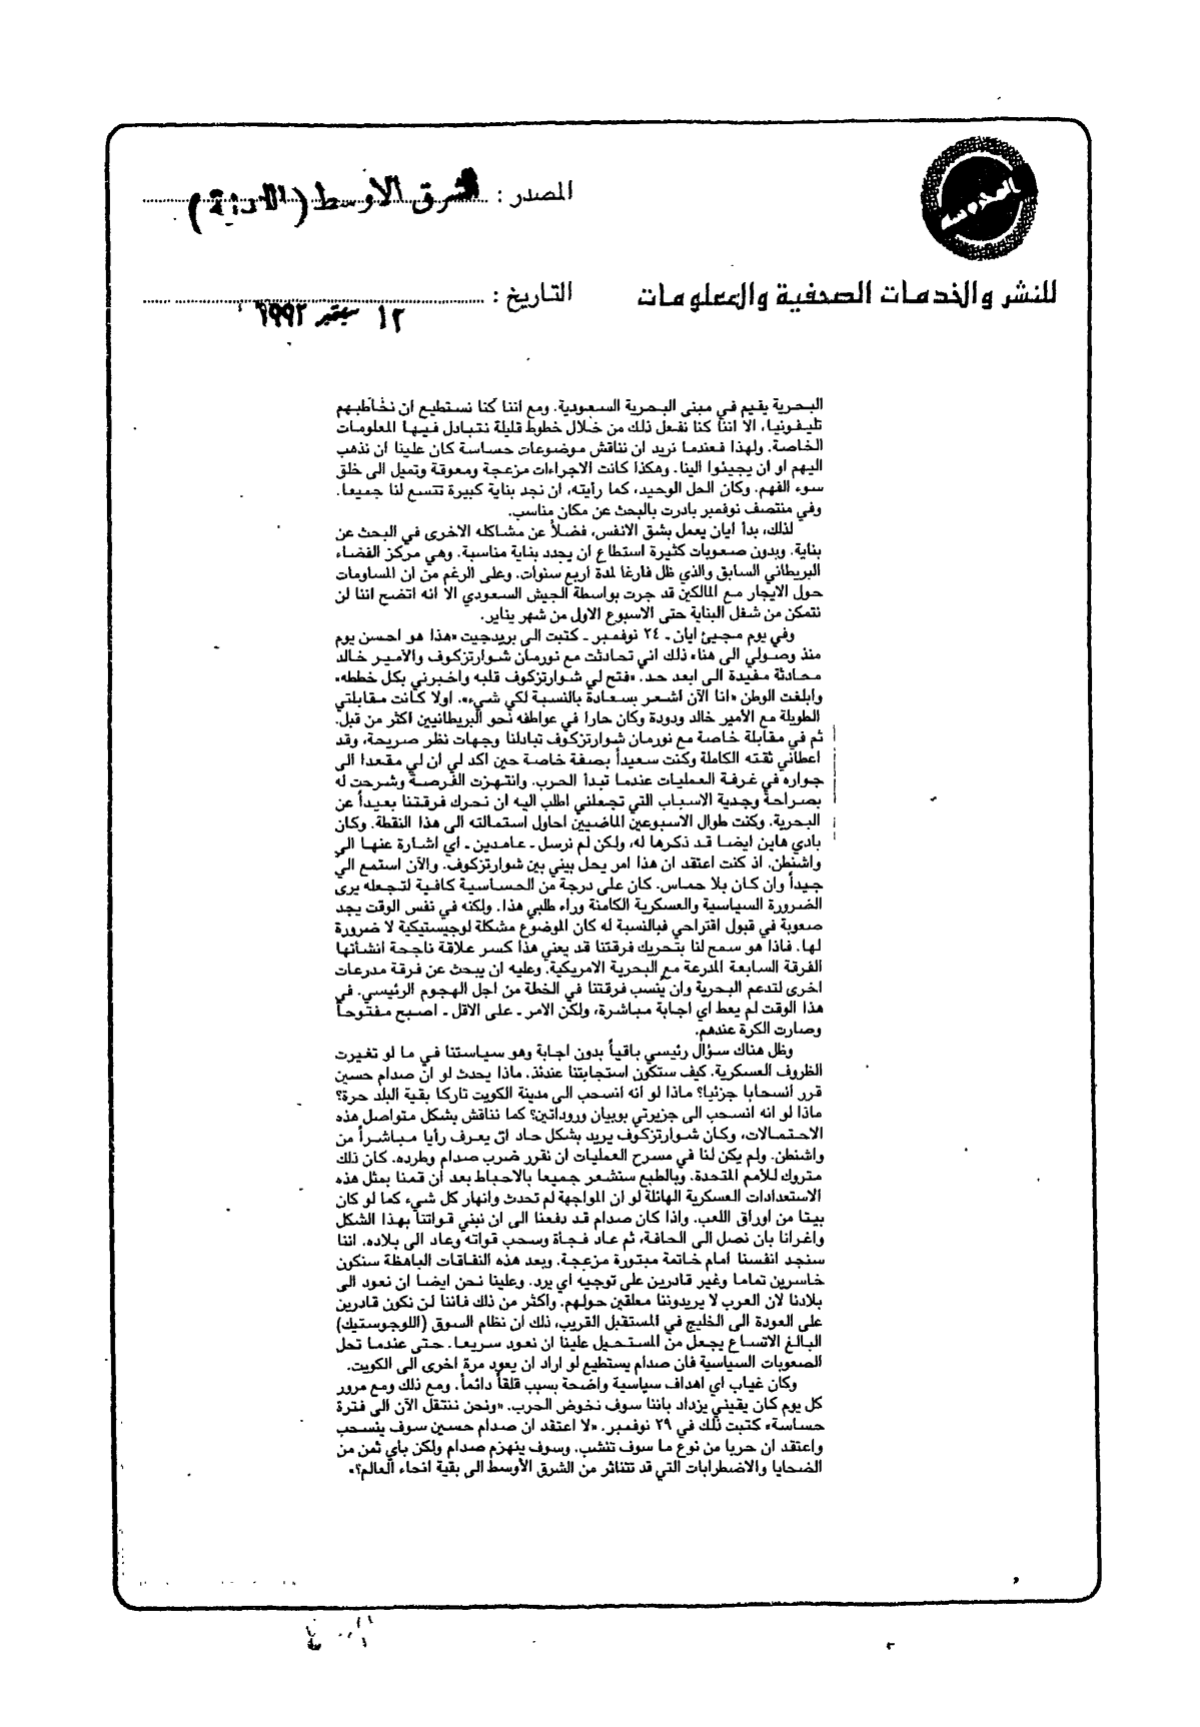 المصدر : الشرق الأوسط (اللندنية)
للنشر والخدمات الصحفية والمعلومات
التاريخ : ١٢ سبتمبر ١٩٩٢
البحرية يقيم في مبنى البحرية السعودية. ومع اننا كنا نستطيع ان نخاطبهم
تليفونيا، الا اننا كنا نفعل ذلك من خلال خطوط قليلة نتبادل فيها المعلومات
الخاصة. ولهذا فعندما نريد ان نناقش موضوعات حساسة كان علينا ان نذهب
اليهم او ان يجيئوا الينا. وهكذا كانت الاجراءات مزعجة ومعوقة وتميل الى خلق
سوء الفهم. وكان الحل الوحيد، كما رأيته، ان نجد بناية كبيرة تتسع لنا جميعا.
وفي منتصف نوفمبر بادرت بالبحث عن مكان مناسب.
لذلك، بدأ ايان يعمل بشق الانفس، فضلاً عن مشاكله الاخرى في البحث عن
بناية. وبدون صعوبات كثيرة استطاع ان يجدد بناية مناسبة. وهي مركز الفضاء
البريطاني السابق والذي ظل فارغا لمدة أربع سنوات. وعلى الرغم من ان المساومات
حول الايجار مع المالكين قد جرت بواسطة الجيش السعودي الا انه اتضح اننا لن
نتمكن من شغل البناية حتى الاسبوع الاول من شهر يناير.
وفي يوم مجيئ ايان ـ ٢٤ نوفمبر ـ كتبت الى بريدجيت «هذا هو احسن يوم
منذ وصولي الى هنا» ذلك اني تحادثت مع نورمان شوارتزكوف والامير خالد
محادثة مفيدة الى ابعد حد. «فتح لي شوارتزكوف قلبه واخبرني بكل خططه»
وابلغت الوطن «انا الآن اشعر بسعادة بالنسبة لكي شيء». اولا كانت مقابلتي
الطويلة مع الأمير خالد ودودة وكان حارا في عواطفه نحو البريطانيين اكثر من قبل.
ثم في مقابلة خاصة مع نورمان شوارتزكوف تبادلنا وجهات نظر صريحة، وقد
اعطاني ثقته الكاملة وكنت سعيداً بصفة خاصة حين اكد لي ان لي مقعدا الى
جواره في غرفة العمليات عندما تبدأ الحرب. وانتهزت الفرصة وشرحت له
بصراحة وجدية الاسباب التي تجعلني اطلب اليه ان نحرك فرقتنا بعيداً عن
البحرية. وكنت طوال الاسبوعين الماضيين احاول استمالته الى هذا النقطة. وكان
بادي هاين ايضا قد ذكرها له، ولكن لم نرسل ـ عامدين ـ اي اشارة عنها الى
واشنطن. اذ كنت اعتقد ان هذا امر يحل بيني بين شوارتزكوف. والآن استمع الي
جيداً وان كان بلا حماس. كان على درجة من الحساسية كافية لتجعله يرى
الضرورة السياسية والعسكرية الكامنة وراء طلبي هذا. ولكنه في نفس الوقت يجد
صعوبة في قبول اقتراحي فبالنسبة له كان الموضوع مشكلة لوجيستيكية لا ضرورة
لها. فاذا هو سمح لنا بتحريك فرقتنا قد يعني هذا كسر علاقة ناجحة انشأتها
الفرقة السابعة المدرعة مع البحرية الامريكية. وعليه ان يبحث عن فرقة مدرعات
اخرى لتدعم البحرية وان يُنسب فرقتنا في الخطة من اجل الهجوم الرئيسي. في
هذا الوقت لم يعط اي اجابة مباشرة، ولكن الامر ـ على الاقل ـ اصبح مفتوحاً
وصارت الكرة عندهم.
وظل هناك سؤال رئيسي باقياً بدون اجابة وهو سياستنا في ما لو تغيرت
الظروف العسكرية. كيف ستكون استجابتنا عندئذ. ماذا يحدث لو ان صدام حسين
قرر انسحابا جزئيا؟ ماذا لو انه انسحب الى مدينة الكويت تاركا بقية البلد حرة؟
ماذا لو انه انسحب الى جزيرتي بوبيان وروداتين؟ كما نناقش بشكل متواصل هذه
الاحتمالات، وكان شوارتزكوف يريد بشكل حاد ان يعرف رأيا مباشراً من
واشنطن. ولم يكن لنا في مسرح العمليات ان نقرر ضرب صدام وطرده. كان ذلك
متروك للأمم المتحدة. وبالطبع سنشعر جميعا بالاحباط بعد ان قمنا بمثل هذه
الاستعدادات العسكرية الهائلة لو ان المواجهة لم تحدث وانهار كل شيء كما لو كان
بيتا من اوراق اللعب. واذا كان صدام قد دفعنا الى ان نبني قواتنا بهذا الشكل
واغرانا بان نصل الى الحافة، ثم عاد فجأة وسحب قواته وعاد الى بلاده. اننا
سنجد انفسنا امام خاتمة مبتورة مزعجة. وبعد هذه النفاقات الباهظة سنكون
خاسرين تماما وغير قادرين على توجيه أي يرد. وعلينا نحن ايضا ان نعود الى
بلادنا لان العرب لا يريدوننا معلقين حولهم. واكثر من ذلك فاننا لن نكون قادرين
على العودة الى الخليج في المستقبل القريب، ذلك ان نظام السوق (اللوجوستيك)
البالغ الاتساع يجعل من المستحيل علينا ان نعود سريعا. حتى عندما تحل
الصعوبات السياسية فان صدام يستطيع لو اراد ان يعود مرة اخرى الى الكويت.
وكان غياب اي اهداف سياسية واضحة يسبب قلقاً دائماً. ومع ذلك ومع مرور
كل يوم كان يقيني يزداد باننا سوف نخوض الحرب. «ونحن ننتقل الآن الى فترة
حساسة» كتبت ذلك في ٢٩ نوفمبر. «لا اعتقد ان صدام حسين سوف ينسحب
واعتقد ان حربا من نوع ما سوف تنشب. وسوف ينهزم صدام ولكن بأي ثمن من
الضحايا والاضطرابات التي قد تتناثر من الشرق الأوسط الى بقية انحاء العالم؟»